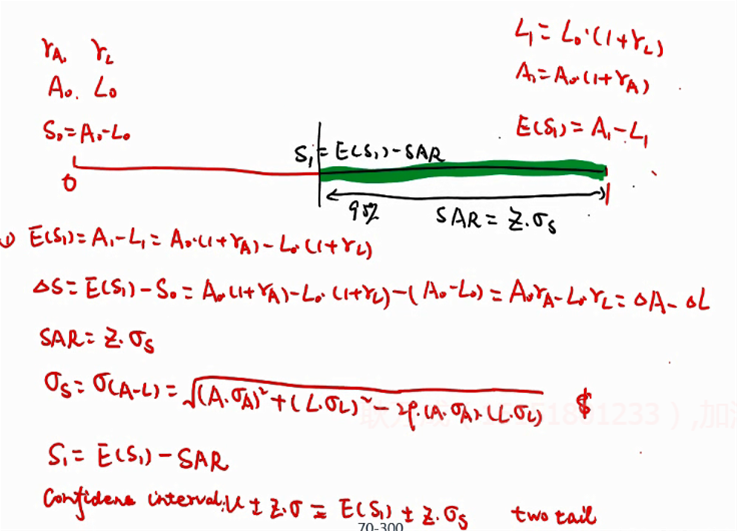 r_A r_L
A₀. L₀
S₀ = A₀ - L₀
L₁ = L₀·(1+r_L)
A₁ = A₀·(1+r_A)
E(S₁) = A₁ - L₁
S₁ = E(S₁) - SAR
0
1
95%
SAR = Z·σ_S
① E(S₁) = A₁ - L₁ = A₀·(1+r_A) - L₀·(1+r_L)
ΔS = E(S₁) - S₀ = A₀(1+r_A) - L₀·(1+r_L) - (A₀ - L₀) = A₀r_A - L₀·r_L = ΔA - ΔL
SAR = Z·σ_S
σ_S = σ(A-L) = √((A·σ_A)² + (L·σ_L)² - 2ρ·(A·σ_A)·(L·σ_L)) $
S₁ = E(S₁) - SAR
Confidene interval: μ ± Z·σ = E(S₁) ± Z·σ_S two tail
70-300